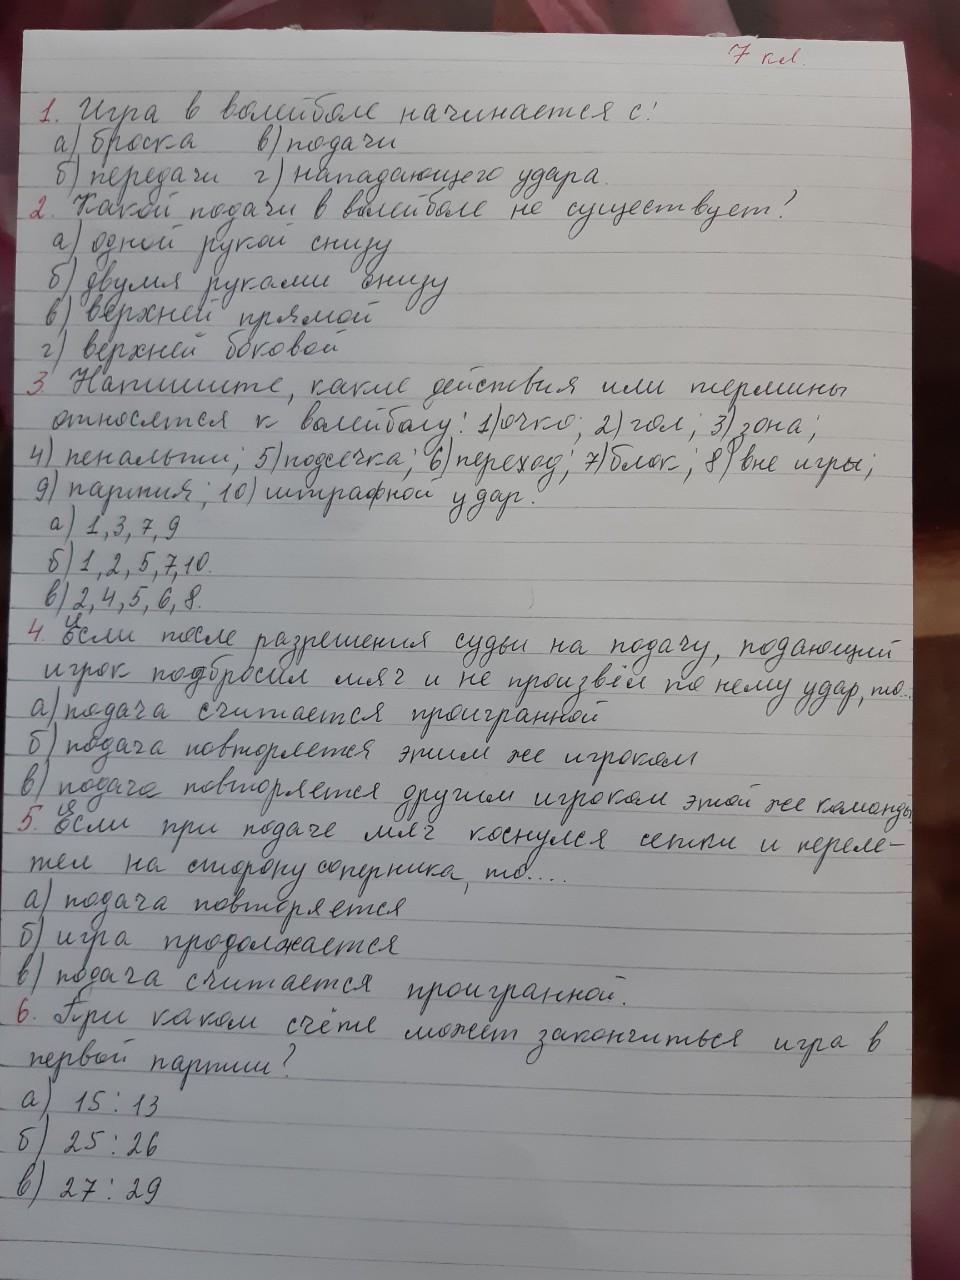 7 кл.
1. Игра в волейболе начинается с:
а) броска в) подачи
б) передачи г) нападающего удара.
2. Какой подачи в волейболе не существует?
а) одной рукой снизу
б) двумя руками снизу
в) верхней прямой
г) верхней боковой
3 Напишите, какие действия или термины
относятся к волейболу: 1) очко; 2) гол; 3) зона;
4) пенальти; 5) подсечка; 6) переход; 7) блок; 8) вне игры;
9) партия; 10) штрафной удар.
а) 1, 3, 7, 9
б) 1, 2, 5, 7, 10.
в) 2, 4, 5, 6, 8.
4. Если после разрешения судьи на подачу, подающий
игрок подбросил мяч и не произвёл по нему удар, то...
а) подача считается проигранной
б) подача повторяется этим же игроком
в) подача повторяется другим игроком этой же команды
5. Если при подаче мяч коснулся сетки и переле-
тел на сторону соперника, то....
а) подача повторяется
б) игра продолжается
в) подача считается проигранной.
6. При каком счёте может закончиться игра в
первой партии?
а) 15 : 13
б) 25 : 26
в) 27 : 29